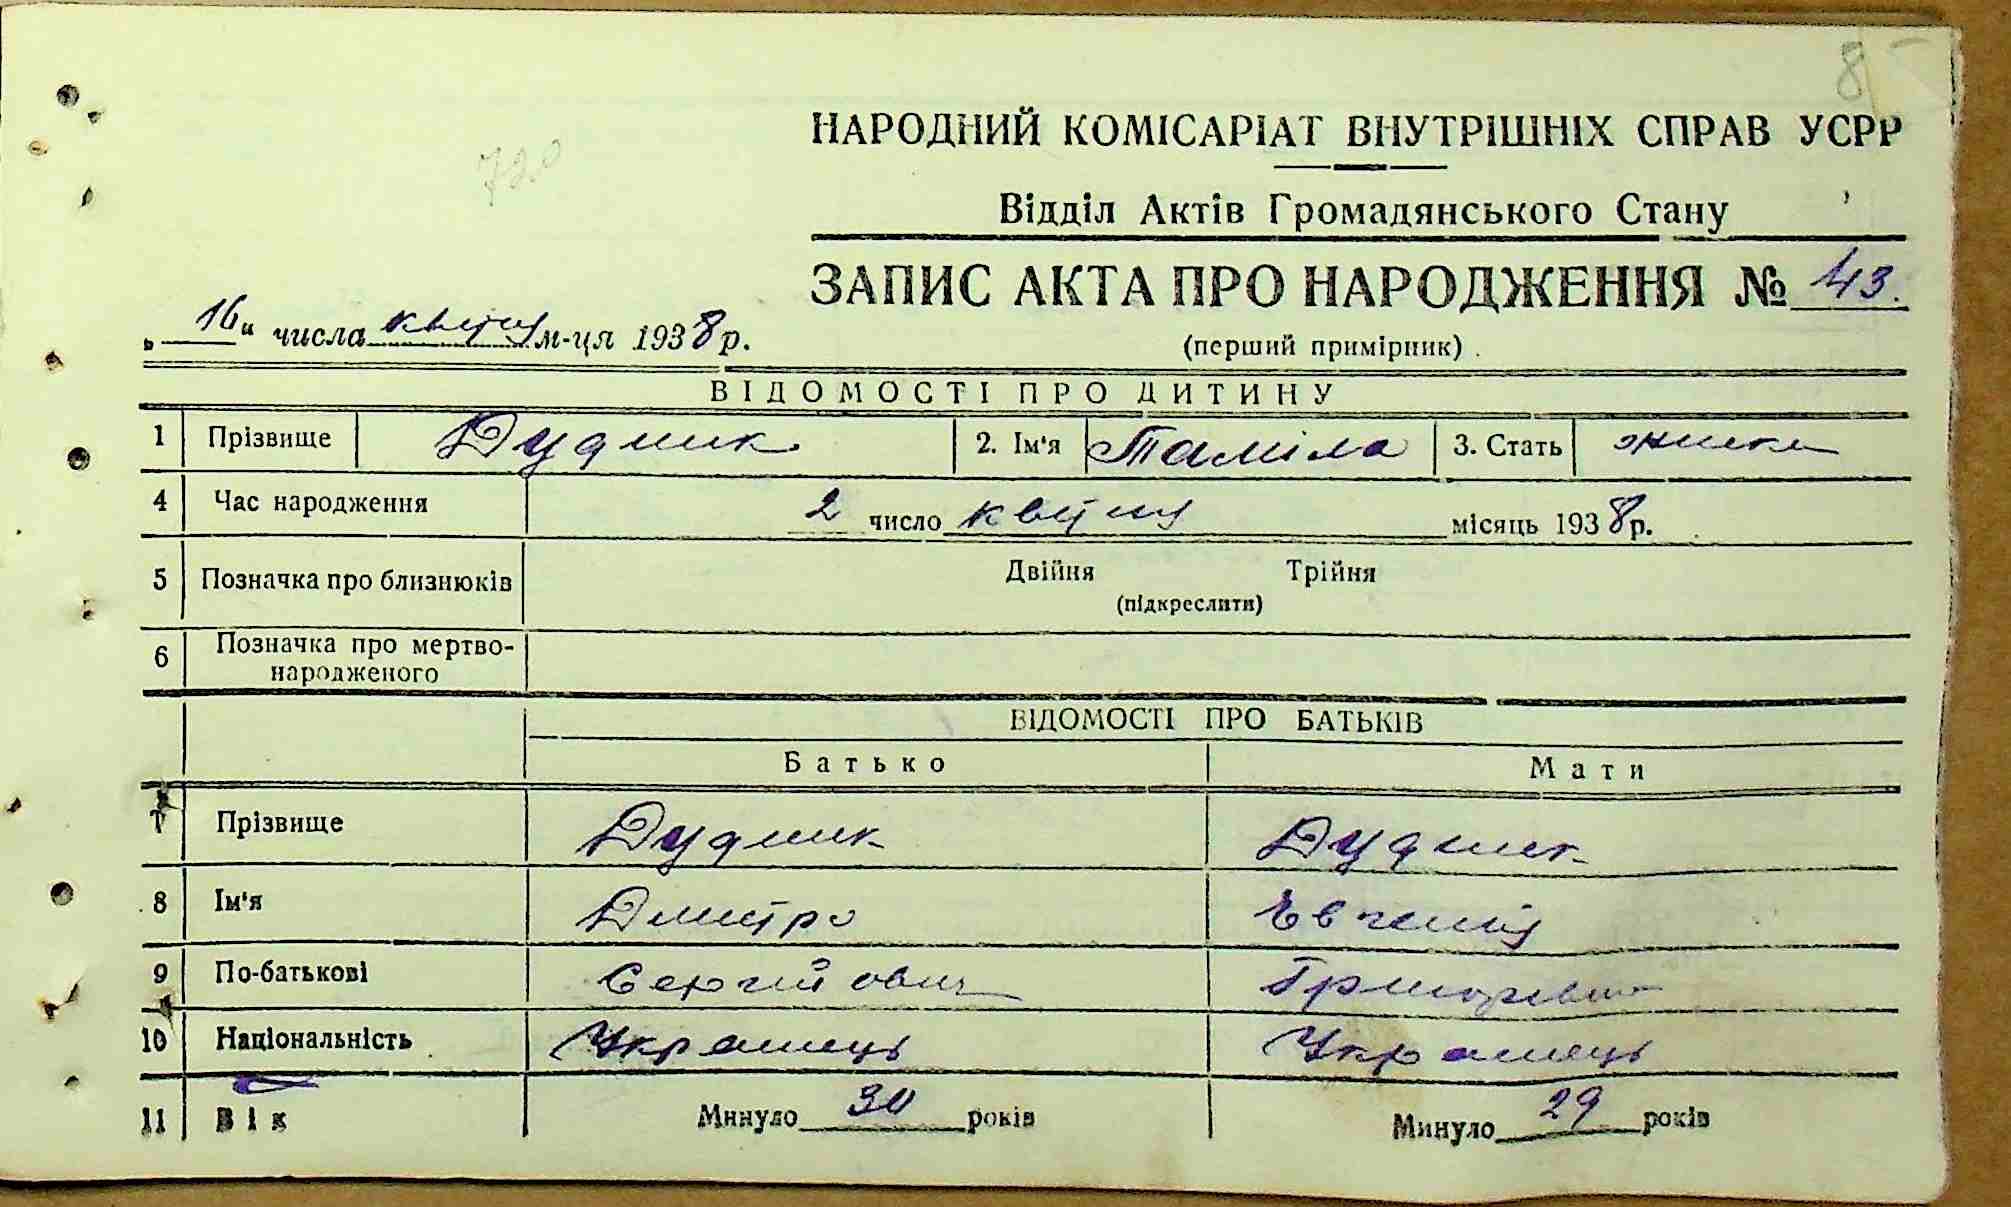 8
720
НАРОДНИЙ КОМІСАРІАТ ВНУТРІШНІХ СПРАВ УСРР
Відділ Актів Громадянського Стану
ЗАПИС АКТА ПРО НАРОДЖЕННЯ № 43.
„ 16 " числа квітня м-ця 1938 р.
(перший примірник)
ВІДОМОСТІ ПРО ДИТИНУ
1 Прізвище Дудник 2. Ім'я Таміла 3. Стать
4 Час народження 2 число квітня місяць 1938 р.
5 Позначка про близнюків Двійня Трійня
(підкреслити)
6 Позначка про мертво-
народженого
ВІДОМОСТІ ПРО БАТЬКІВ
Батько Мати
7 Прізвище Дудник Дудник
8 Ім'я Дмитро Євгенія
9 По-батькові Сергійович Григорівна
10 Національність Українець Українець
11 Вік Минуло 30 років Минуло 29 років